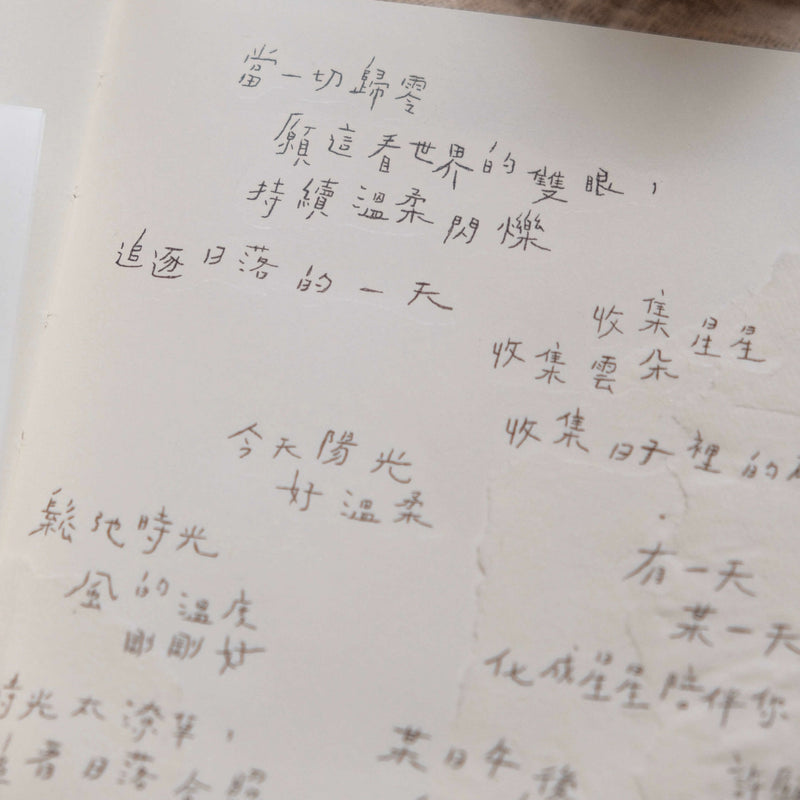 當一切歸零
願這看世界的雙眼，
持續溫柔閃爍
追逐日落的一天
收集星星
收集雲朵
收集日子裡的
今天陽光
好溫柔
鬆弛時光
風的溫度
剛剛好
有一天
某一天
化成星星陪伴你
時光太
著日落余照
某日午後
許願